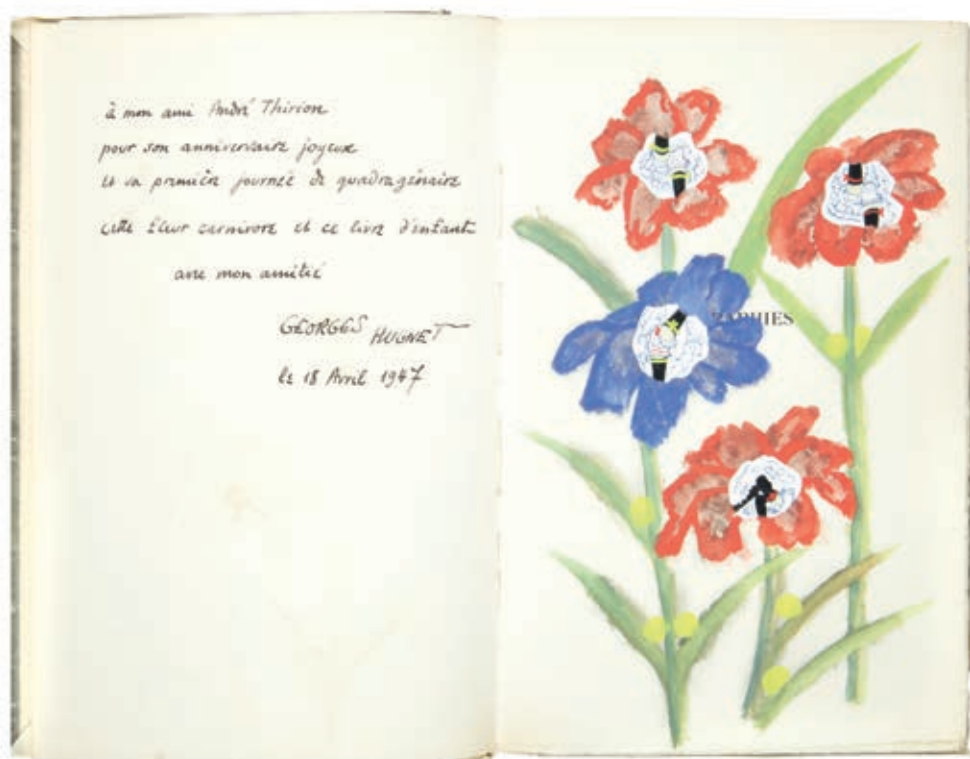 à mon ami André Thirion
pour son anniversaire joyeux
et sa première journée de quadragénaire
cette fleur carnivore et ce livre d'enfant
avec mon amitié
GEORGES HUGNET
le 18 Avril 1947
RAPHIES